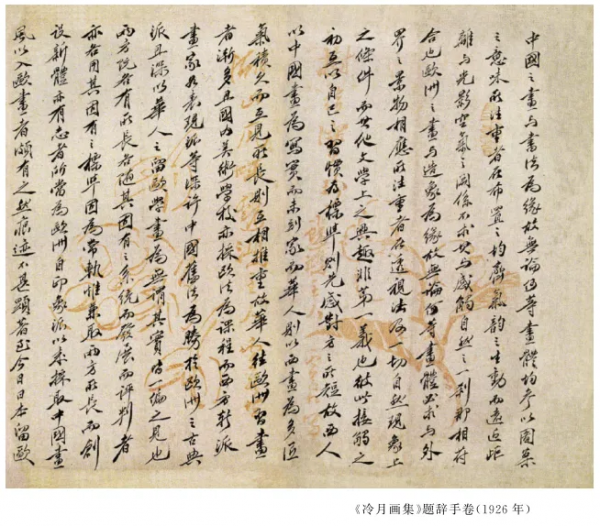 中國之畫與書法為緣故無論何等畫體均參以圖案
之意味所注重者在布置之均齊氣韻之生動而遠近距
離與光影空氣之關係不求其與感觸自然之一刹那相符
合也歐洲之畫與造象為緣故無論何等畫體必求與外
界之景物相應所注重者在透視法及一切自然現象上
之條件而其他文學上之興趣非第一義也彼此接觸之
初互以自己之習慣為標準則先感對方之所短故西人
以中國畫為寫實而未到家而華人則以西畫為多匠
氣積久而互見所長則互相推重故華人往歐洲習畫
者漸多且國內美術學校亦採歐法為課程而西方新派
畫家如表現派等深許中國舊法為勝於歐洲之古典
派且深以華人之留歐學畫為無謂其實皆一偏之見也
兩方既各有所長各隨其固有之系統而發展而評判者
亦各用其固有之標準固為常軌惟兼取兩方所長而創
設新體亦有志者所當為歐洲自印象派以來採取中國畫
風以入歐畫者頗有之然痕迹不甚顯著至今日日本留歐
《冷月画集》题辞手卷(1926 年)